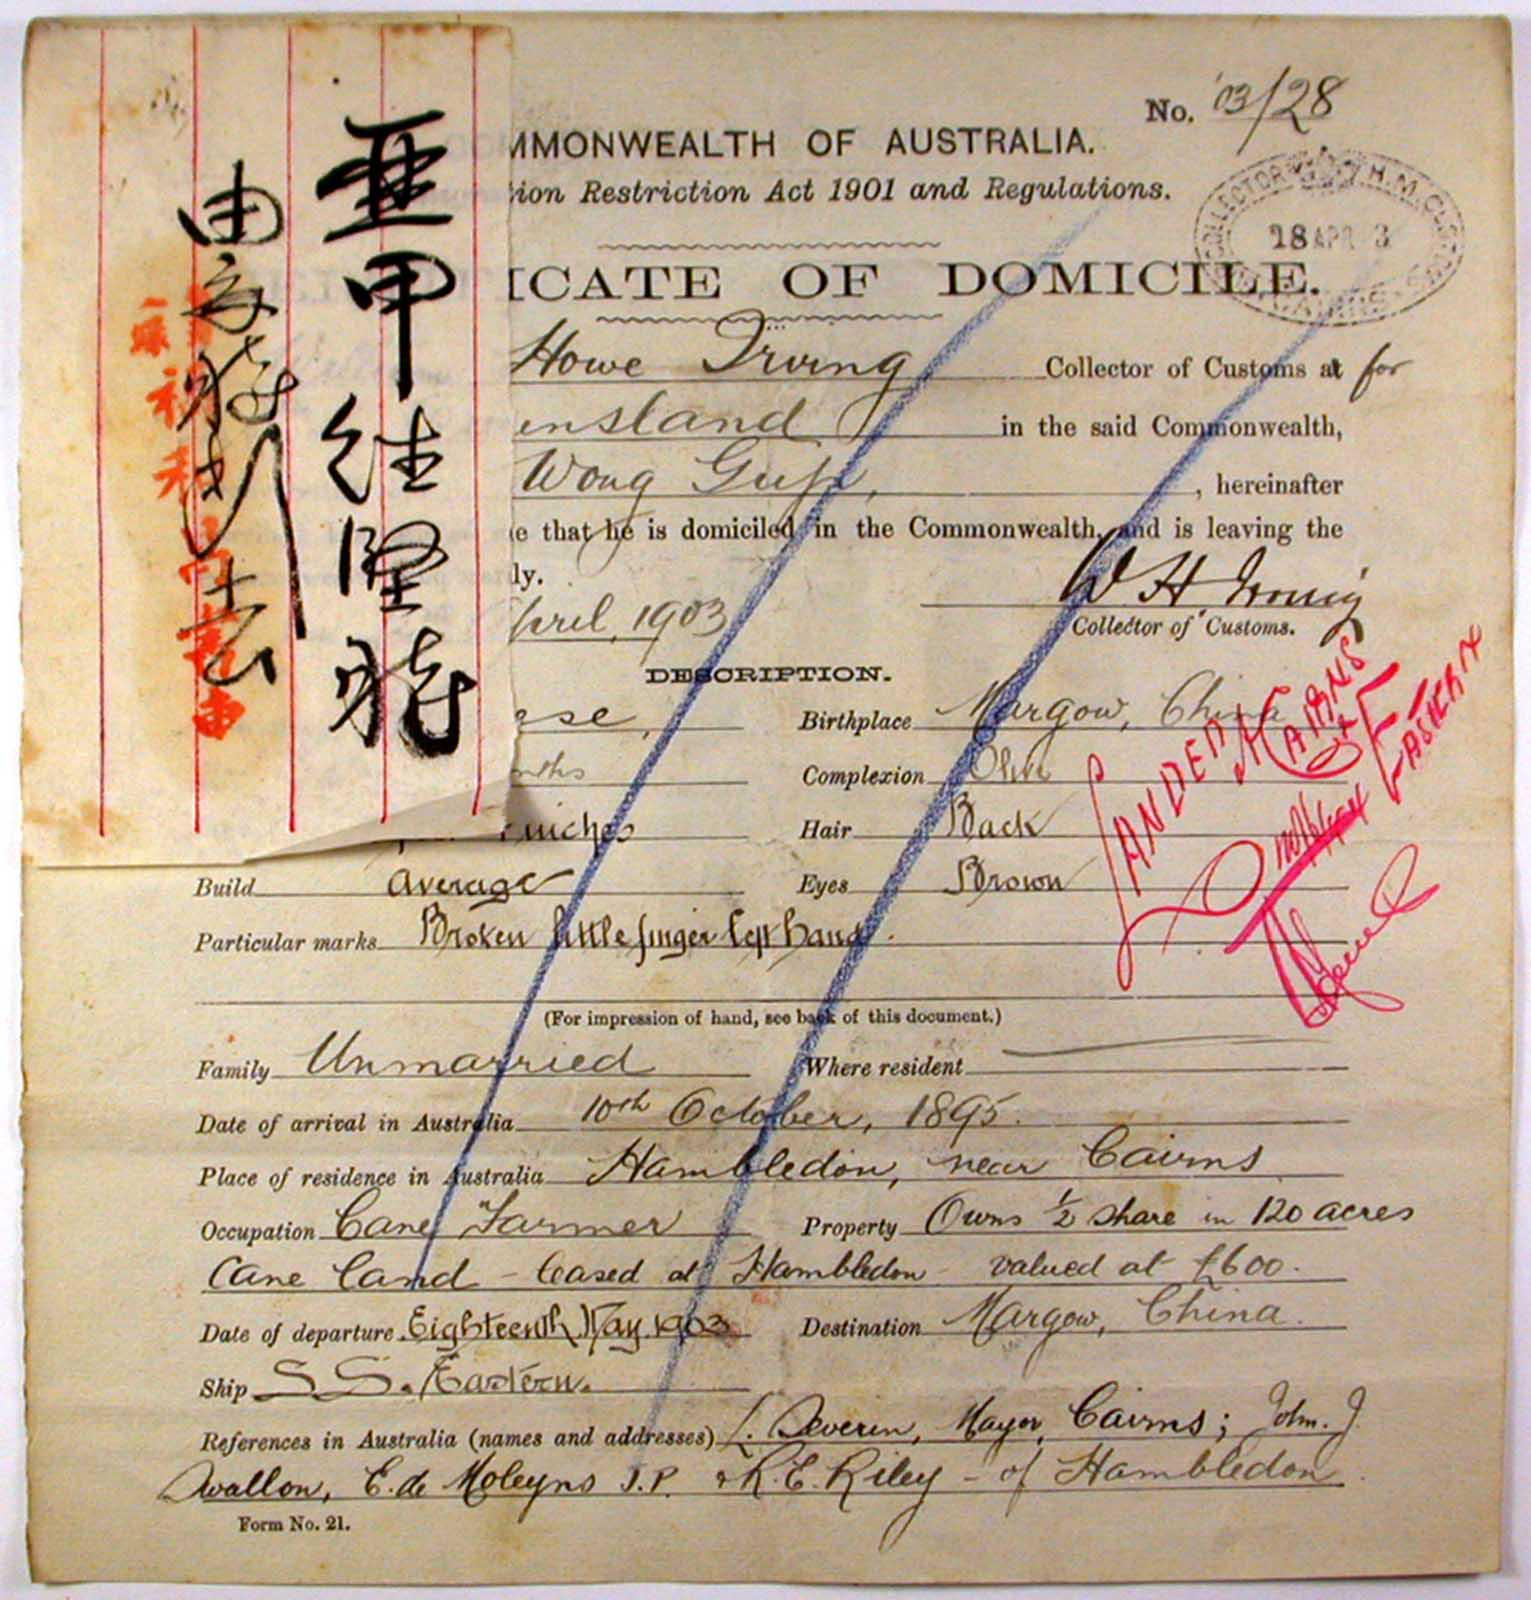 亜甲
No. 03/28
MMONWEALTH OF AUSTRALIA.
ion Restriction Act 1901 and Regulations.
COLLECTOR H.M. CUSTOMS
18 APR 3
CAIRNS
ICATE OF DOMICILE.
Howe Irving Collector of Customs at for
ensland in the said Commonwealth,
Wong , hereinafter
e that he is domiciled in the Commonwealth, and is leaving the
ly.
pril, 1903
W H Irving
Collector of Customs.
DESCRIPTION.
ese, Birthplace Margow, China
nths Complexion Olive
inches Hair Back
Build average Eyes Brown
Particular marks Broken little finger left hand.
(For impression of hand, see back of this document.)
LANDED CAIRNS
EX EASTERN
Family Unmarried Where resident
Date of arrival in Australia 10th October, 1895.
Place of residence in Australia Hambledon, near Cairns
Occupation Cane Farmer Property Owns 1/2 share in 120 acres
Cane land - leased at Hambledon - valued at £600.
Date of departure Eighteenth May 1903 Destination Margow, China.
Ship S.S. Eastern.
References in Australia (names and addresses) L. Severin, Mayor, Cairns; John. J.
Swallow, E. de Moleyns J.P. & R. E. Riley - of Hambledon.
Form No. 21.